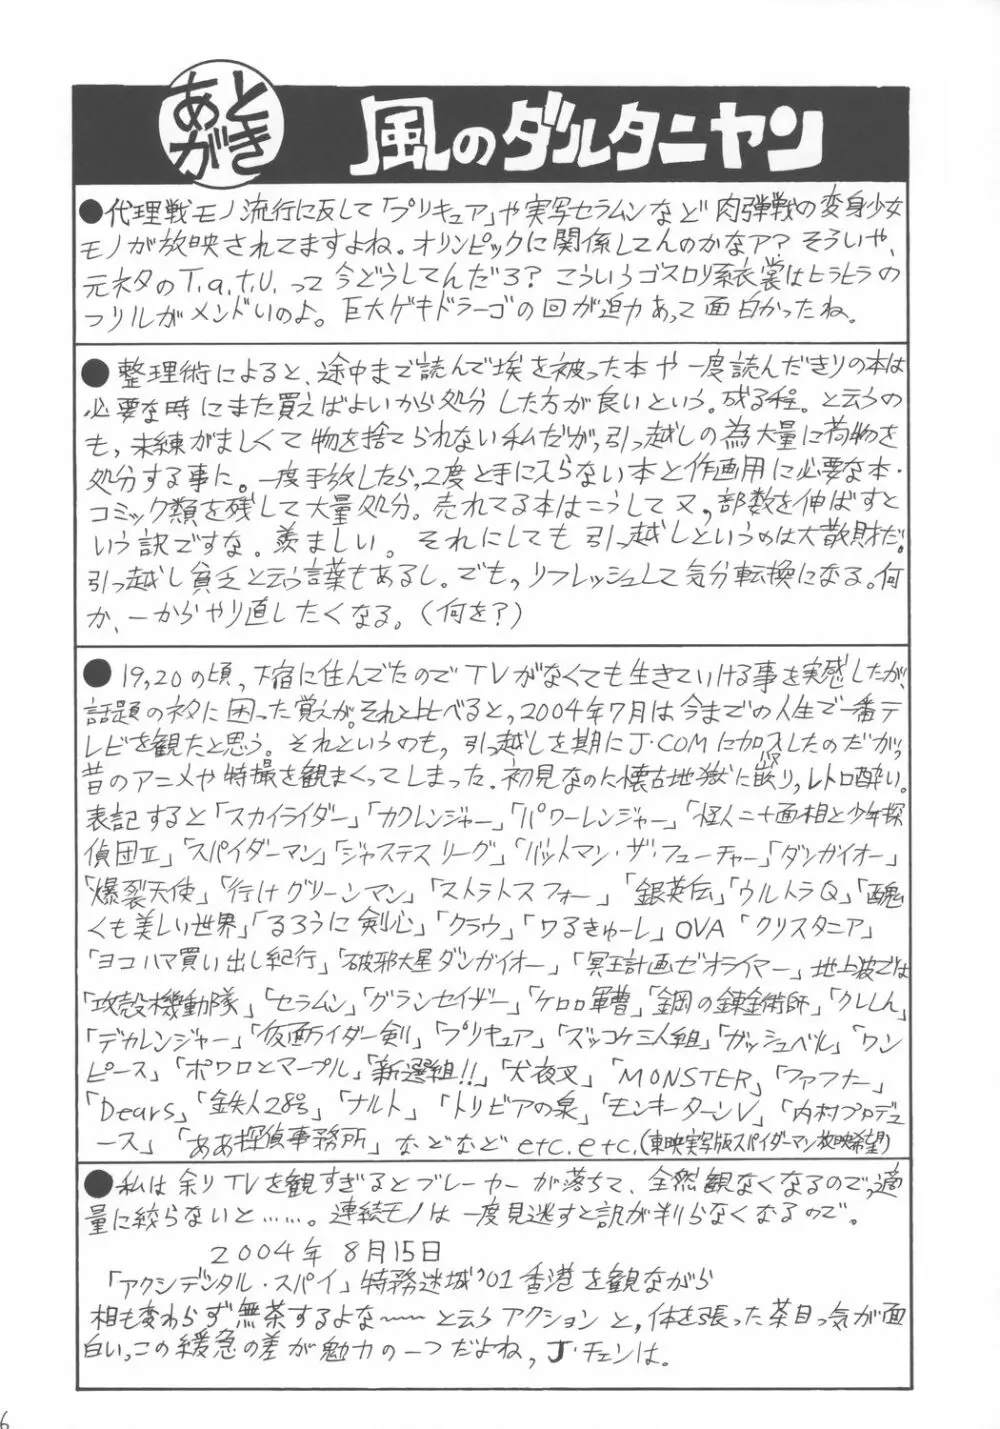 あとがき 風のダルタニヤン
●代理戦モノ流行に反して「プリキュア」や実写セラムンなど肉弾戦の変身少女
モノが放映されてますよね。オリンピックに関係してんのかなァ?そういや、
元ネタのT.a.t.U.って今どうしてんだろ?こういうゴスロリ系衣裳はヒラヒラの
フリルがメンドいのよ。巨大ゲキドラーゴの回が迫力あって面白かったね。
●整理術によると、途中まで読んで埃を被った本や一度読んだきりの本は
必要な時にまた買えばよいから処分した方が良いという。成る程。と云うの
も、未練がましくて物を捨てられない私だが、引っ越しの為大量に荷物を
処分する事に。一度手放したら、2度と手に入らない本と作画用に必要な本・
コミック類を残して大量処分。売れてる本はこうして又、部数を伸ばすと
いう訳ですな。羨ましい。それにしても引っ越しというのは大散財だ。
引っ越し貧乏と云う言葉もあるし。でもっリフレッシュして気分転換になる。何
か、一からやり直したくなる。(何を?)
●19,20の頃、下宿に住んでたのでTVがなくても生きていける事を実感したが、
話題のネタに困った覚えが。それと比べると、2004年7月は今までの人生で一番テ
レビを観たと思う。それというのも、引っ越しを期にJ・COMに加入したのだがっ
昔のアニメや特撮を観まくってしまった。初見なのに懐古地獄に嵌り、レトロ酔い。
表記すると「スカイライダー」「カクレンジャー」「パワーレンジャー」「怪人二十面相と少年探
偵団Ⅱ」「スパイダーマン」「ジャステスリーグ」「バットマン・ザ・フューチャー」「ダンガイオー」
「爆裂天使」「行けグリーンマン」「ストラトスフォー」「銀英伝」「ウルトラQ」「醜
くも美しい世界」「るろうに剣心」「クラウ」「ワるきゅーレ」OVA「クリスタニア」
「ヨコハマ買い出し紀行」「破邪大星ダンガイオー」「冥王計画ゼオライマー」地上波では
「攻殻機動隊」「セラムン」「グランセイザー」「ケロロ軍曹」「鋼の錬金術師」「クレしん」
「デカレンジャー」「仮面ライダー剣」「プリキュア」「ズッコケ三人組」「ガッシュベル」「ワン
ピース」「ポワロとマープル」「新選組!!」「犬夜叉」「MONSTER」「ファフナー」
「Dears」「鉄人28号」「ナルト」「トリビアの泉」「モンキーターンV」「内村プロデュ
ース」「ああ探偵事務所」などなどetc.etc.(東映実写版スパイダーマン放映希望)
●私は余りTVを観すぎるとブレーカーが落ちて、全然観なくなるのでっ適
量に絞らないと……。連続モノは一度見逃すと訳が判らなくなるので。
2004年8月15日
「アクシデンタル・スパイ」特務迷城'01香港を観ながら
相も変わらず無茶するよな～～と云うアクションと、体を張った茶目っ気が面
白いっこの緩急の差が魅力の一つだよね、J・チェンは。
6